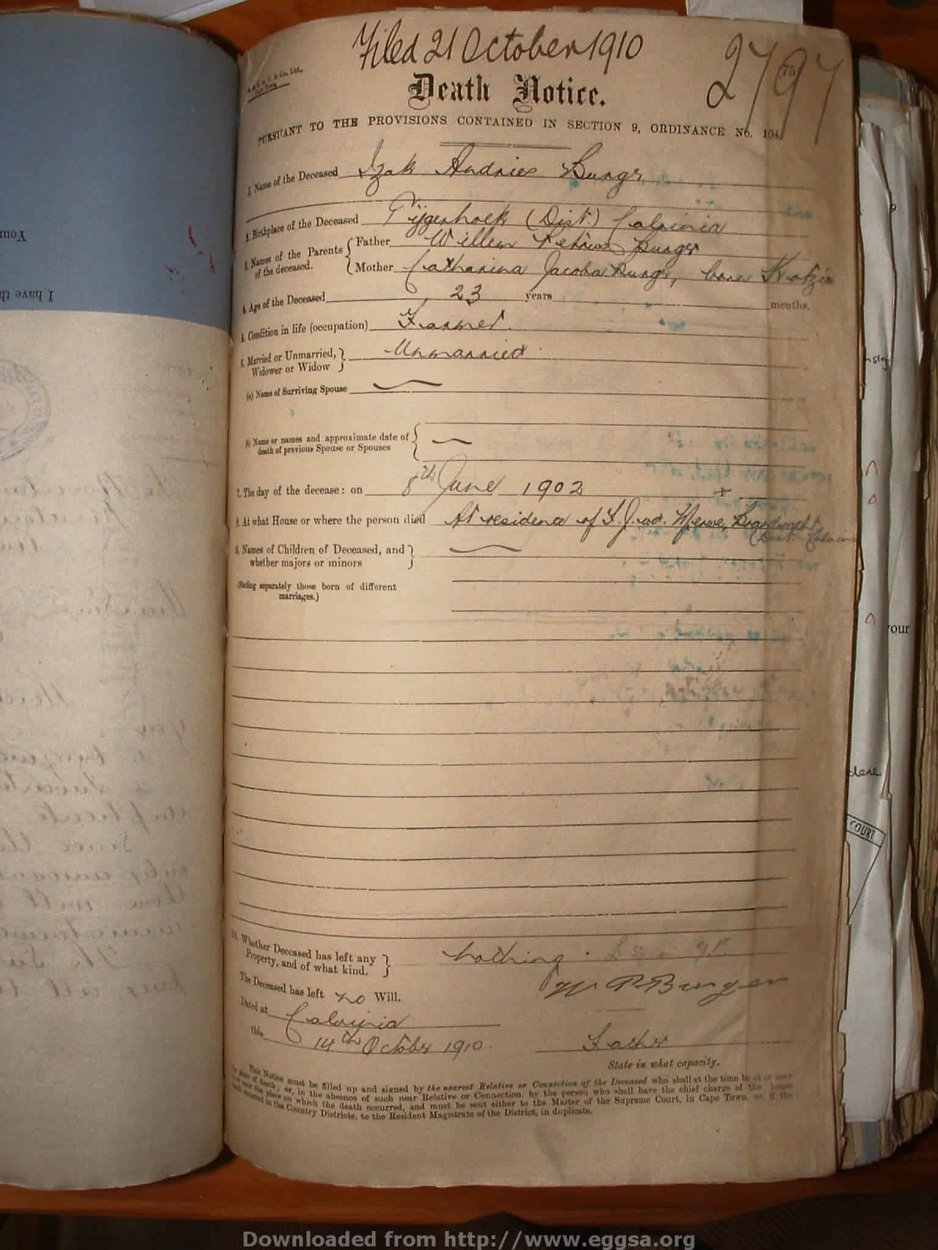 Filed 21 October 1910
2797
75
Death Notice.
PURSUANT TO THE PROVISIONS CONTAINED IN SECTION 9, ORDINANCE No. 104.
1. Name of the Deceased Izak Andries Burger
2. Birthplace of the Deceased Tijgerhoek (Dist) Calvinia
3. Names of the Parents of the deceased. { Father Willem Petrus Burger
Mother Catharina Jacoba Burger, born Kotzee
4. Age of the Deceased 23 years months.
5. Condition in life (occupation) Farmer.
6. Married or Unmarried, Widower or Widow } Unmarried
(a) Name of Surviving Spouse
(b) Name or names and approximate date of death of previous Spouse or Spouses {
7. The day of the decease: on 8th June 1902
8. At what House or where the person died At residence of
9. Names of Children of Deceased, and whether majors or minors }
(Stating separately those born of different marriages.)
10. Whether Deceased has left any Property, and of what kind. } Nothing.
The Deceased has left no Will.
W P Burger
Dated at Calvinia
this 14th October 1910. Father
State in what capacity.
This Notice must be filled up and signed by the nearest Relative or Connection of the Deceased who shall at the time be at or near
place of death; or, in the absence of such near Relative or Connection, by the person who shall have the chief charge of the house
the place on which the death occurred, and must be sent either to the Master of the Supreme Court, in Cape Town, or if the
in the Country Districts, to the Resident Magistrate of the District, in duplicate.
your
COURT
Downloaded from http://www.eggsa.org